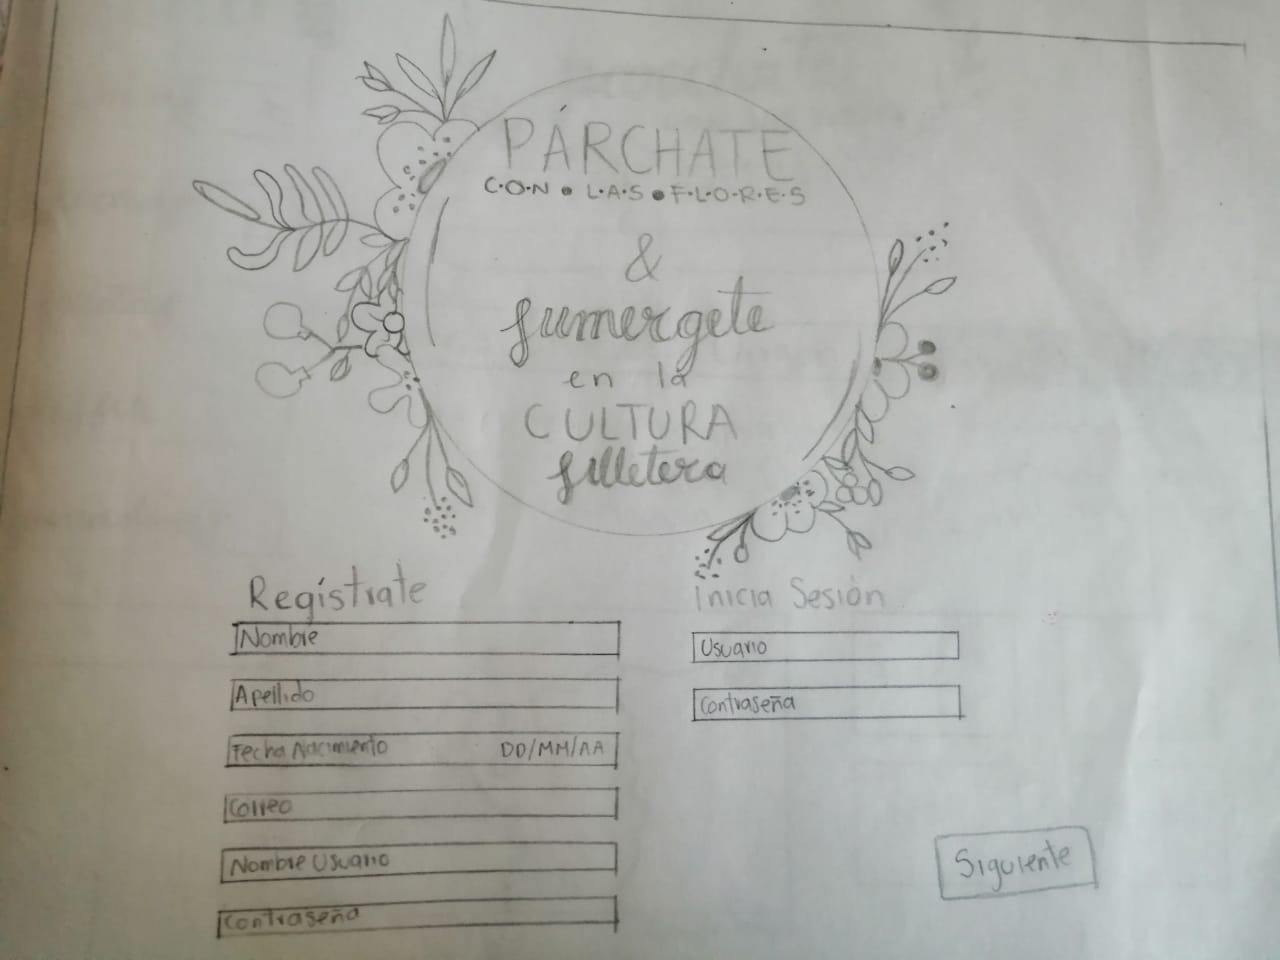 PÁRCHATE
C·O·N • L·A·S • F·L·O·R·E·S
&
sumergete
en la
CULTURA
silletera
Regístrate
Nombre
Apellido
Fecha Nacimiento DD/MM/AA
Correo
Nombre Usuario
Contraseña
Inicia Sesión
Usuario
Contraseña
Siguiente